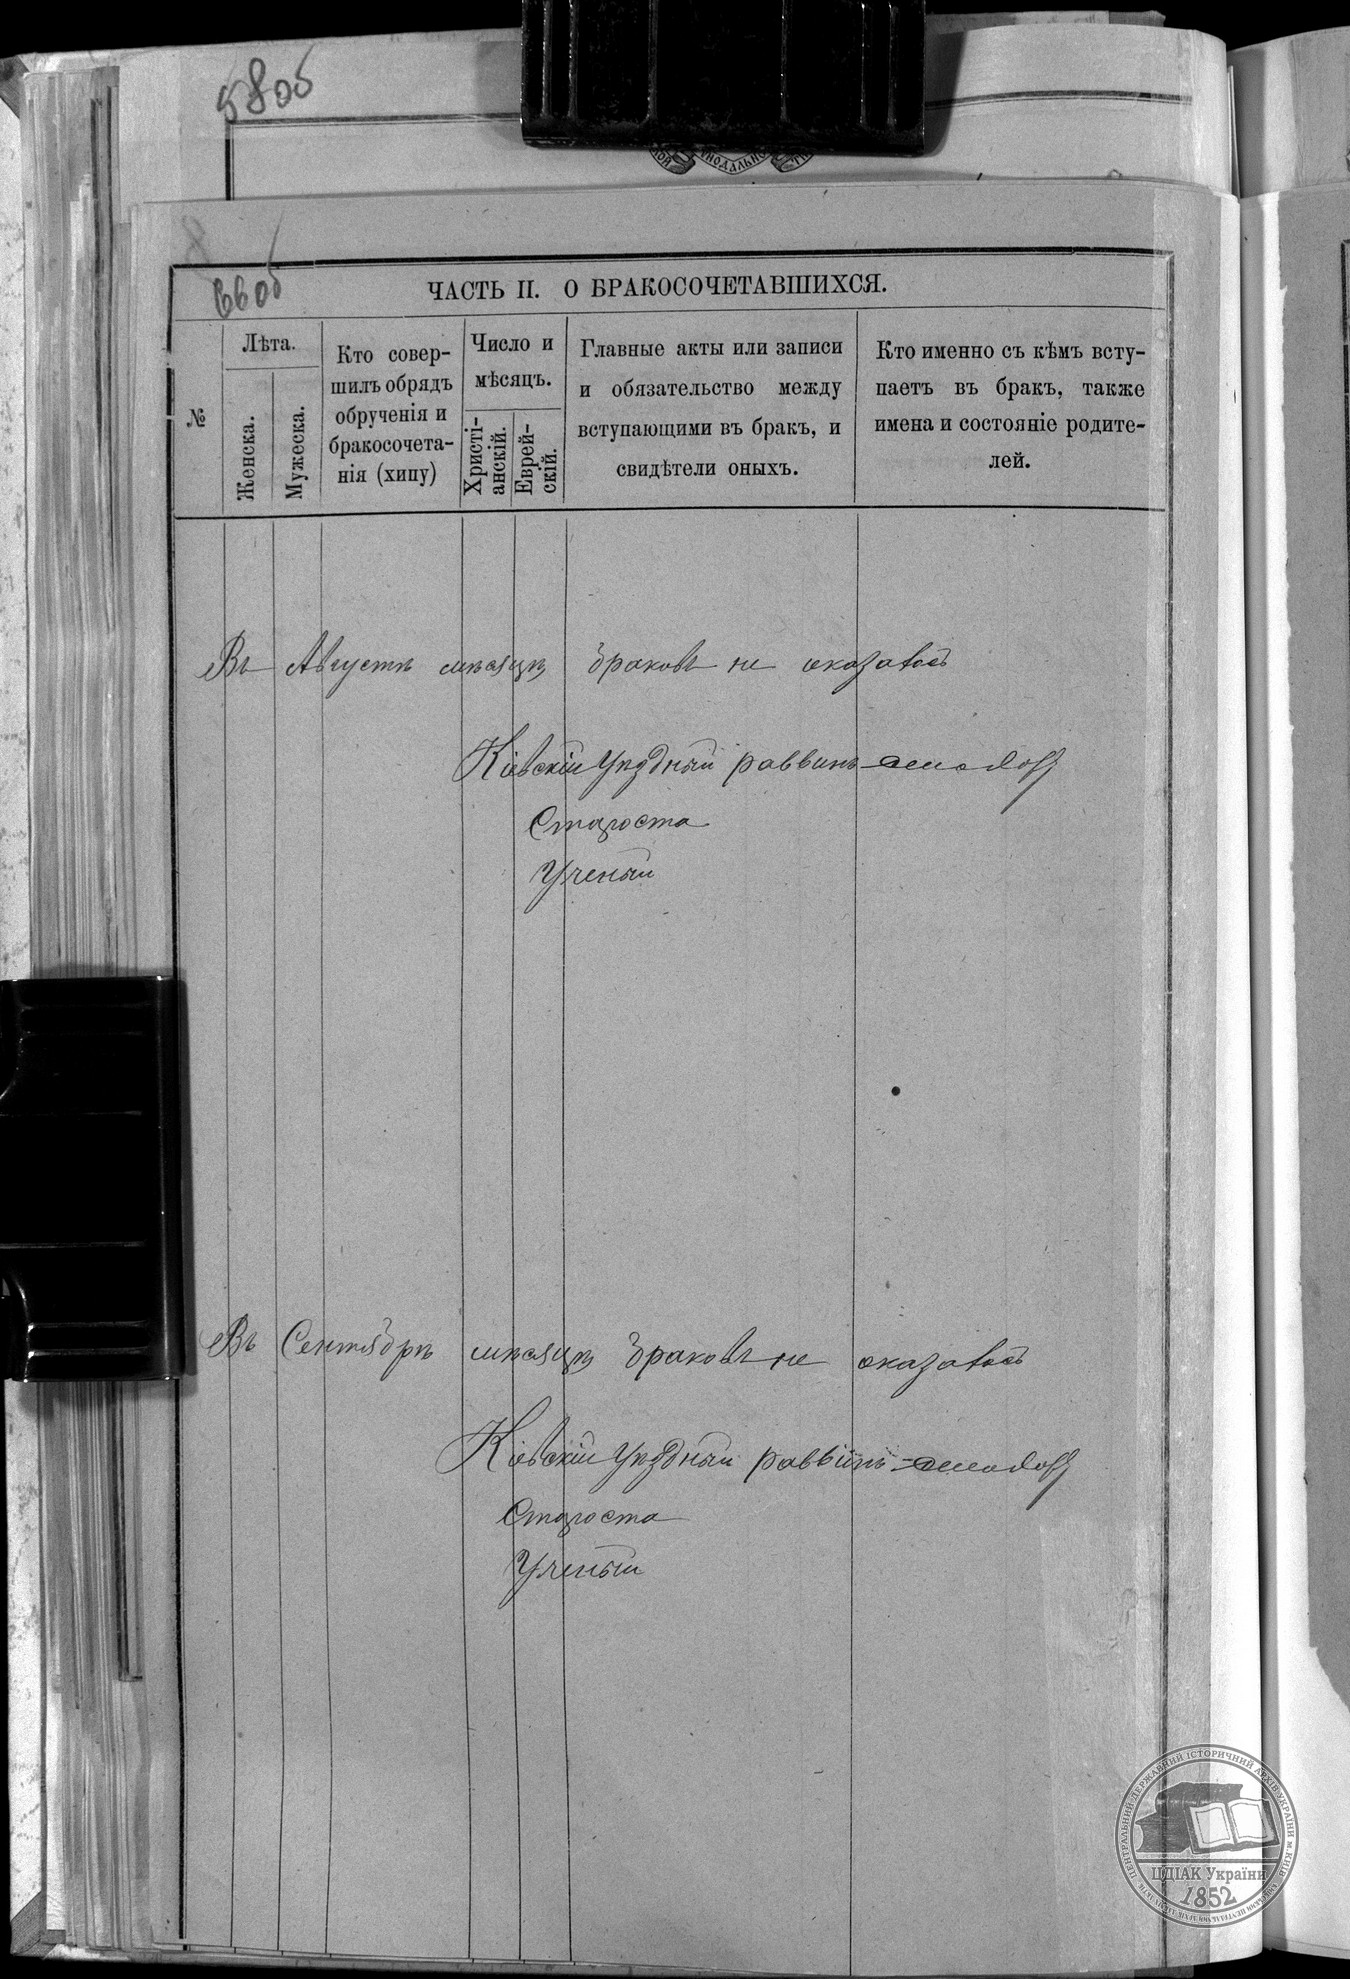 58об
НОДАЛЬНО
66об
ЧАСТЬ II. О БРАКОСОЧЕТАВШИХСЯ.
№
Лѣта.
Женска.
Мужеска.
Кто совер-
шилъ обрядъ
обрученія и
бракосочета-
нія (хипу)
Число и
мѣсяцъ.
Христі-
анскій.
Еврей-
скій.
Главные акты или записи
и обязательство между
вступающими въ бракъ, и
свидѣтели оныхъ.
Кто именно съ кѣмъ всту-
паетъ въ бракъ, также
имена и состояніе родите-
лей.
Въ Августѣ мѣсяцѣ браковъ не оказалось
Кіевскій Уѣздный раввинъ
Староста
Ученый
Въ Сентябрѣ мѣсяцѣ браковъ не оказалось
Кіевскій Уѣздный раввинъ
Староста
Ученый
ЦЕНТРАЛЬНИЙ ДЕРЖАВНИЙ ІСТОРИЧНИЙ АРХІВ УКРАЇНИ м.КИЇВ
ЦДІАК України
1852